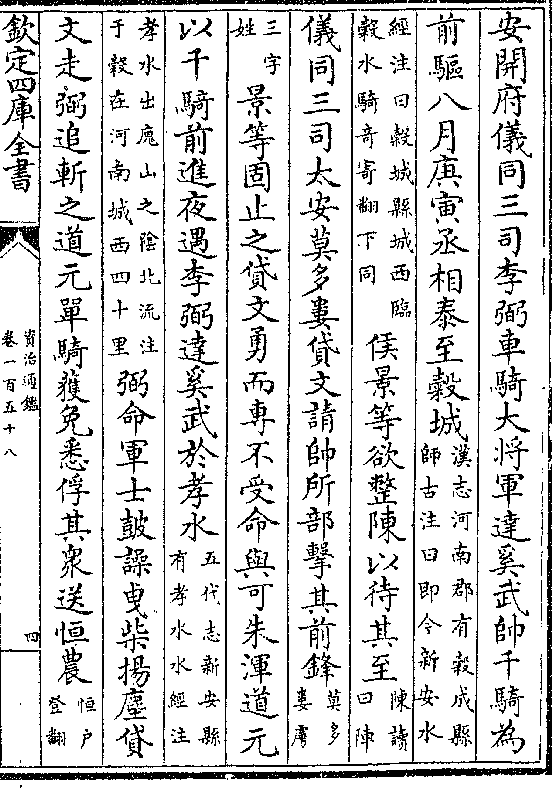 安開府儀同三司李弼車騎大將軍達奚武帥千騎為
前驅八月庚寅丞相泰至穀城
漢志河南郡有穀成縣
師古注曰即今新安水
經注曰穀城縣城西臨
穀水騎奇寄翻下同
侯景等欲整陳以待其至
陳讀
曰陣
儀同三司太安莫多婁貸文請帥所部擊其前鋒
莫多
婁虜
三字
姓
景等固止之貸文勇而專不受命與可朱渾道元
以千騎前進夜遇李弼達奚武於孝水
五代志新安縣
有孝水水經注
孝水出廆山之陰北流注
于穀在河南城西四十里
弼命軍士鼓譟曳柴揚塵貸
文走弼追斬之道元單騎獲免悉俘其衆送恒農
恒户
登翻
欽定四庫全書
資治通鑑
卷一百五十八
四